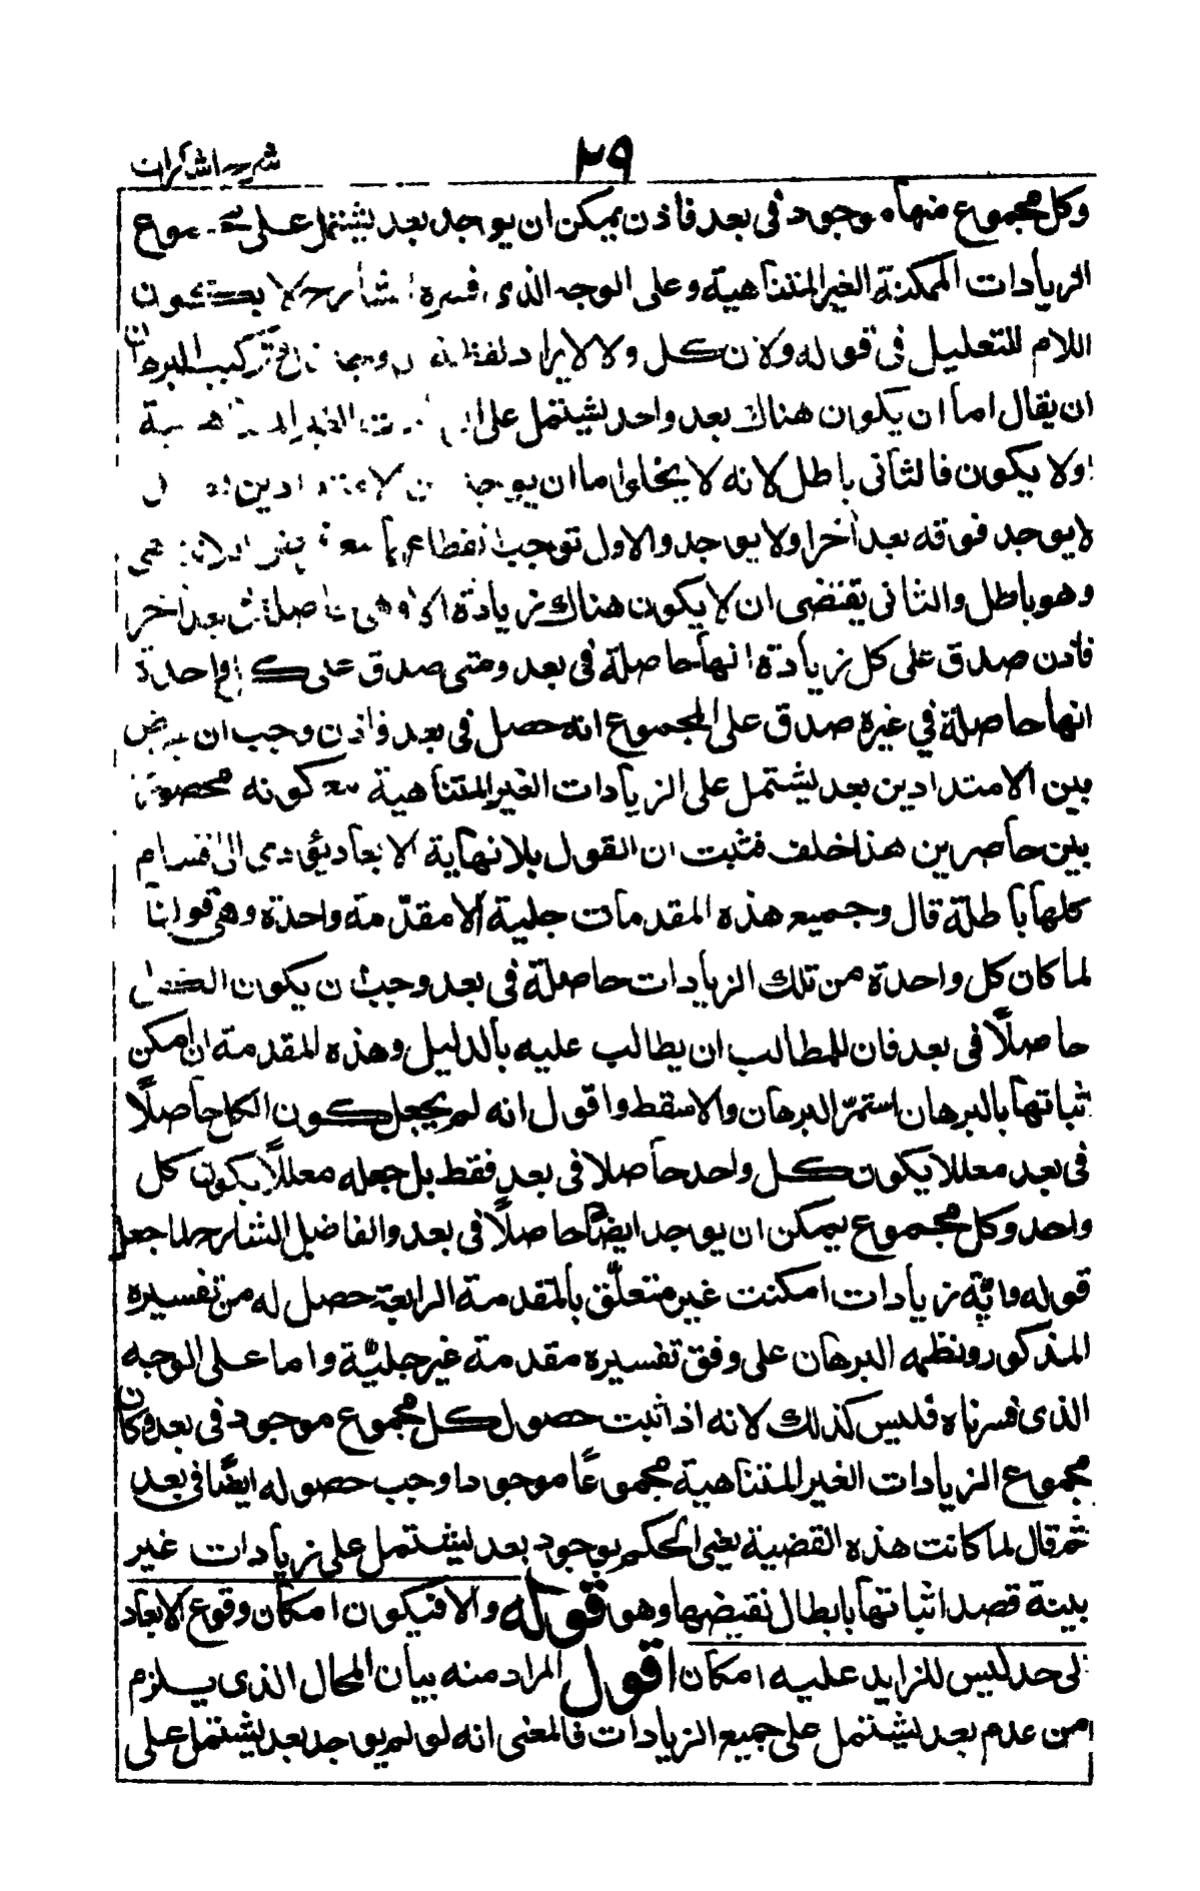 ٢٩
شرح اشارات
وكل مجموع منها موجود فى بعد فاذن يمكن ان يوجد بعد يشتمل على مجموع
الزيادات الممكنة الغير المتناهية وعلى الوجه الذى فسره الشارح لا يكون
اللام للتعليل فى قوله ولان كل ولا لايراد لفظة تركيب البرهان
ان يقال اما ان يكون هناك بعد واحد يشتمل على الغير المتناهية
اولا يكون فالثانى باطل لانه لا يخلو اما ان يوجد
لا يوجد فوقه بعد اخر اولا يوجد والاول توجب انقطاعهما
وهو باطل والثانى يقتضى ان لا يكون هناك زيادة الا وهى حاصلة فى بعد اخر
فاذن صدق على كل زيادة انها حاصلة فى بعد ومتى صدق على كل واحدة
انها حاصلة في غيره صدق على المجموع انه حصل فى بعد فاذن وجب ان يفرض
بين الامتدادين بعد يشتمل على الزيادات الغير المتناهية مع كونه محصورا
بين حاصرين هذا خلف فثبت ان القول بلا نهاية الابعاد يؤدى الى اقسام
كلها باطلة قال وجميع هذه المقدمات جلية الا مقدّمة واحدة وهى قولنا
لما كان كل واحدة من تلك الزيادات حاصلة فى بعد وجب ان يكون الكل
حاصلًا فى بعد فان للمطالب ان يطالب عليه بالدليل وهذه المقدمة ان امكن
اثباتها بالبرهان استمرّ البرهان والا سقط واقول انه لم يجعل كون الكل حاصلًا
فى بعد معللا بكون كل واحد حاصلا فى بعد فقط بل جعله معللًا بكون كل
واحد وكل مجموع يمكن ان يوجد ايضًا حاصلًا فى بعد والفاضل الشارح لما جعل
قوله وايّة زيادات امكنت غير متعلّق بالمقدمة الرابعة حصل له من تفسيره
المذكور ونظمه البرهان على وفق تفسيره مقدمة غير جليّة واما على الوجه
الذى فسرناه فليس كذلك لانه اذا ثبت حصول كل مجموع موجود فى بعد وكان
مجموع الزيادات الغير المتناهية مجموعًا موجودا وجب حصوله ايضًا فى بعد
ثم قال لما كانت هذه القضية يعنى الحكم بوجود بعد يشتمل على زيادات غير
بينة قصد اثباتها بابطال نقيضها وهو قوله والا فيكون امكان وقوع الابعاد
الى حد ليس للزايد عليه امكان اقول المراد منه بيان المحال الذى يلزم
من عدم بعد يشتمل على جميع الزيادات فالمعنى انه لو لم يوجد بعد يشتمل على